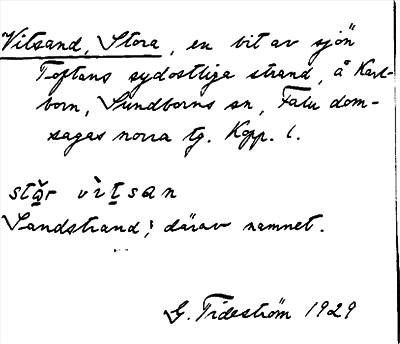 Vitsand, Stora, en bit av sjön
Toftans sydostliga strand, å Karls-
born, Sundborns sn, Falu dom-
sagas norra tg. Kopp. l.
stăr vìtsan
Sandstrand; därav namnet.
G. Tideström 1929